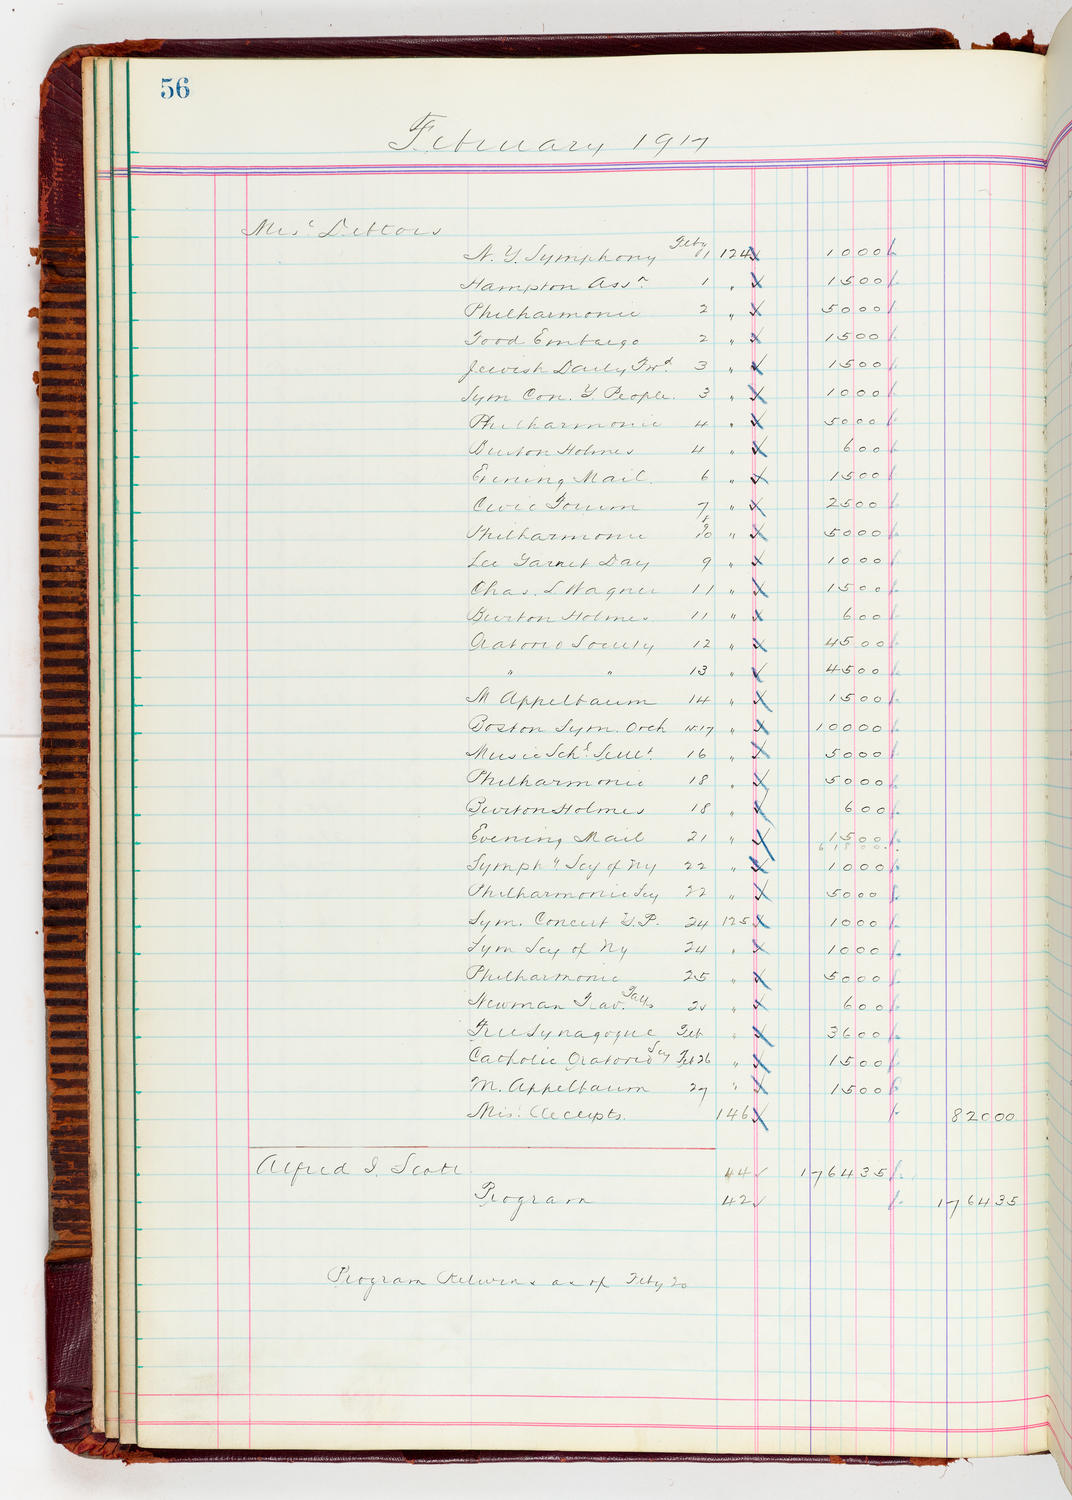 56
February 1917
Misc Debtors
N. Y. Symphony Feby 1 124 1000
Hampton Assn 1 " 1500
Philharmonic 2 " 5000
Food Embargo 2 " 1500
Jewish Daily Fwd. 3 " 1500
Sym Con. Y People. 3 " 1000
Philharmonic 4 " 5000
Burton Holmes 4 " 600
Evening Mail. 6 " 1500
Civic Forum 7 " 2500
Philharmonic 8 9 10 " 5000
Lee Garnet Day 9 " 1000
Chas. L Wagner 11 " 1500
Burton Holmes 11 " 600
Oratorio Society 12 " 4500
" " 13 " 4500
M Appelbaum 14 " 1500
Boston Sym. Orch 15 17 " 10000
Music Schl Settlt. 16 " 5000
Philharmonic 18 " 5000
Burton Holmes 18 " 600
Evening Mail 21 " 1500
61800
Symphy Scy of Ny 22 " 1000
Philharmonic Scy 22 " 5000
Sym. Concert Y. P. 24 125 1000
Sym Scy of Ny 24 " 1000
Philharmonic 25 " 5000
Newman Trav. Talks 25 " 600
Free Synagogue Feb " 3600
Catholic Oratorio Scy Feb 26 " 1500
M. Appelbaum 27 " 1500
Mis. Receipts. 146 82000
Alfred J. Scott 44 176435
Program 42 176435
Program Returns as of Feby 20